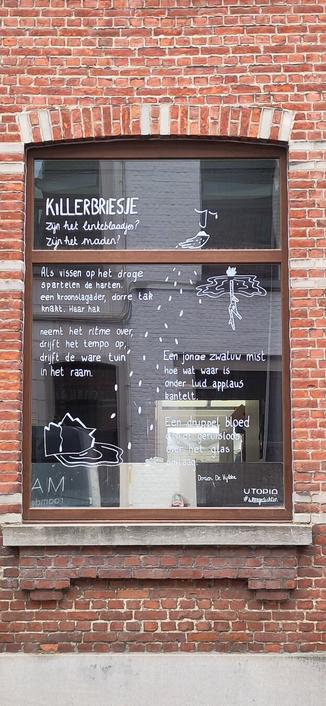 KILLERBRIESJE
Zijn het lenteblaadjes?
Zijn het maden?
Als vissen op het droge
spartelen de harten.
een kroonslagader, dorre tak
knakt. Haar hak
neemt het ritme over,
drijft het tempo op,
drijft de ware tuin
in het raam.
Een jonge zwaluw mist
hoe wat waar is
onder luid applaus
kantelt.
Een druppel bloed
over het glas
UTOPIA